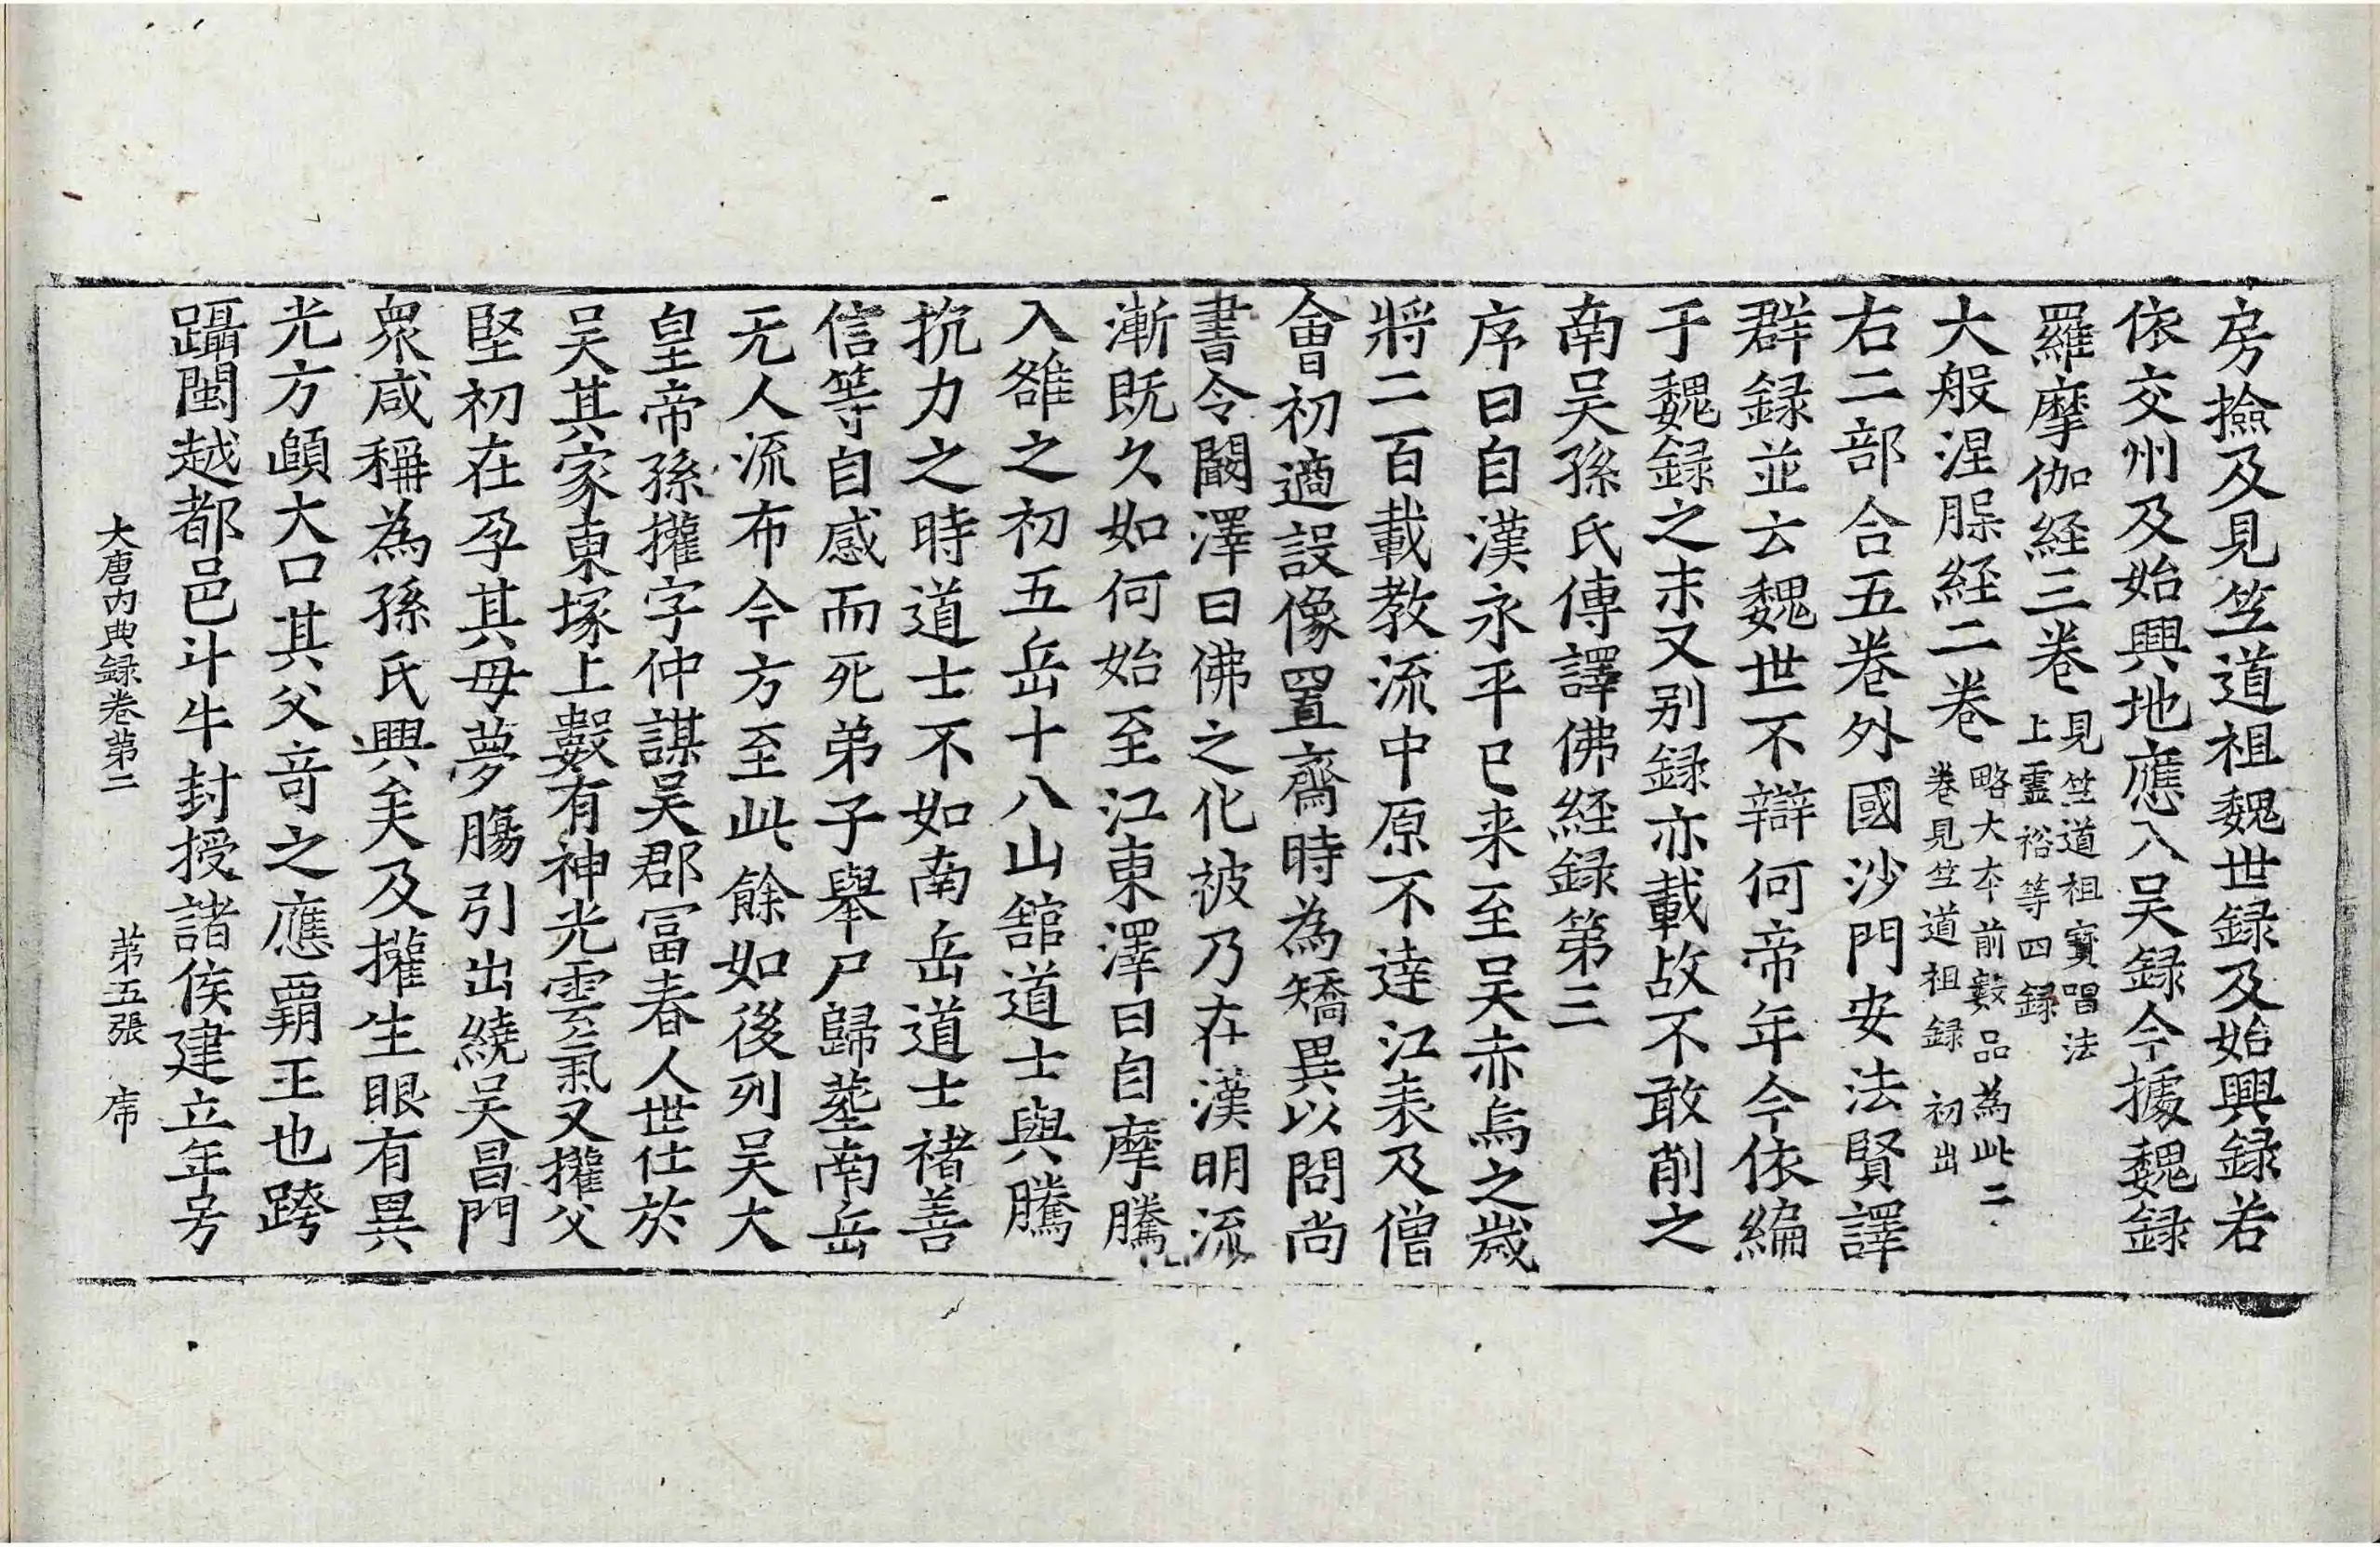 房撿及見笠道祖魏世録及始興録若
依交州及始興地應入吴録今據魏録
羅摩伽経三卷見竺道祖寶唱法上靈裕等四録
大般涅槃経二卷略大本前數品為此二卷見竺道祖録 初出
右二部合五卷外國沙門安法賢譯
群録並云魏世不辯何帝年今依編
于魏録之末又别録亦載故不敢削之
南吴孫氏傳譯佛経録第三
序曰自漢永平已来至吴赤烏之歲
將二百載教流中原不達江表及僧
會初適設像置齋時為矯異以問尚
書令闞澤曰佛之化被乃在漢明流
漸既久如何始至江東澤曰自摩騰
入雒之初五岳十八山舘道士與騰
抗力之時道士不如南岳道士褚善
信等自感而死弟子舉尸歸塟南岳
无人流布今方至此餘如後列吴大
皇帝孫權字仲謀吴郡冨春人世仕於
吴其家東塚上數有神光雲氣又權父
堅初在孕其母夢膓引出繞吴昌門
衆咸稱為孫氏興矣及權生眼有異
光方頤大口其父竒之應覇王也跨
躡閩越都邑斗牛封授諸侯建立年号
大唐内典録卷第二 苐五張 席